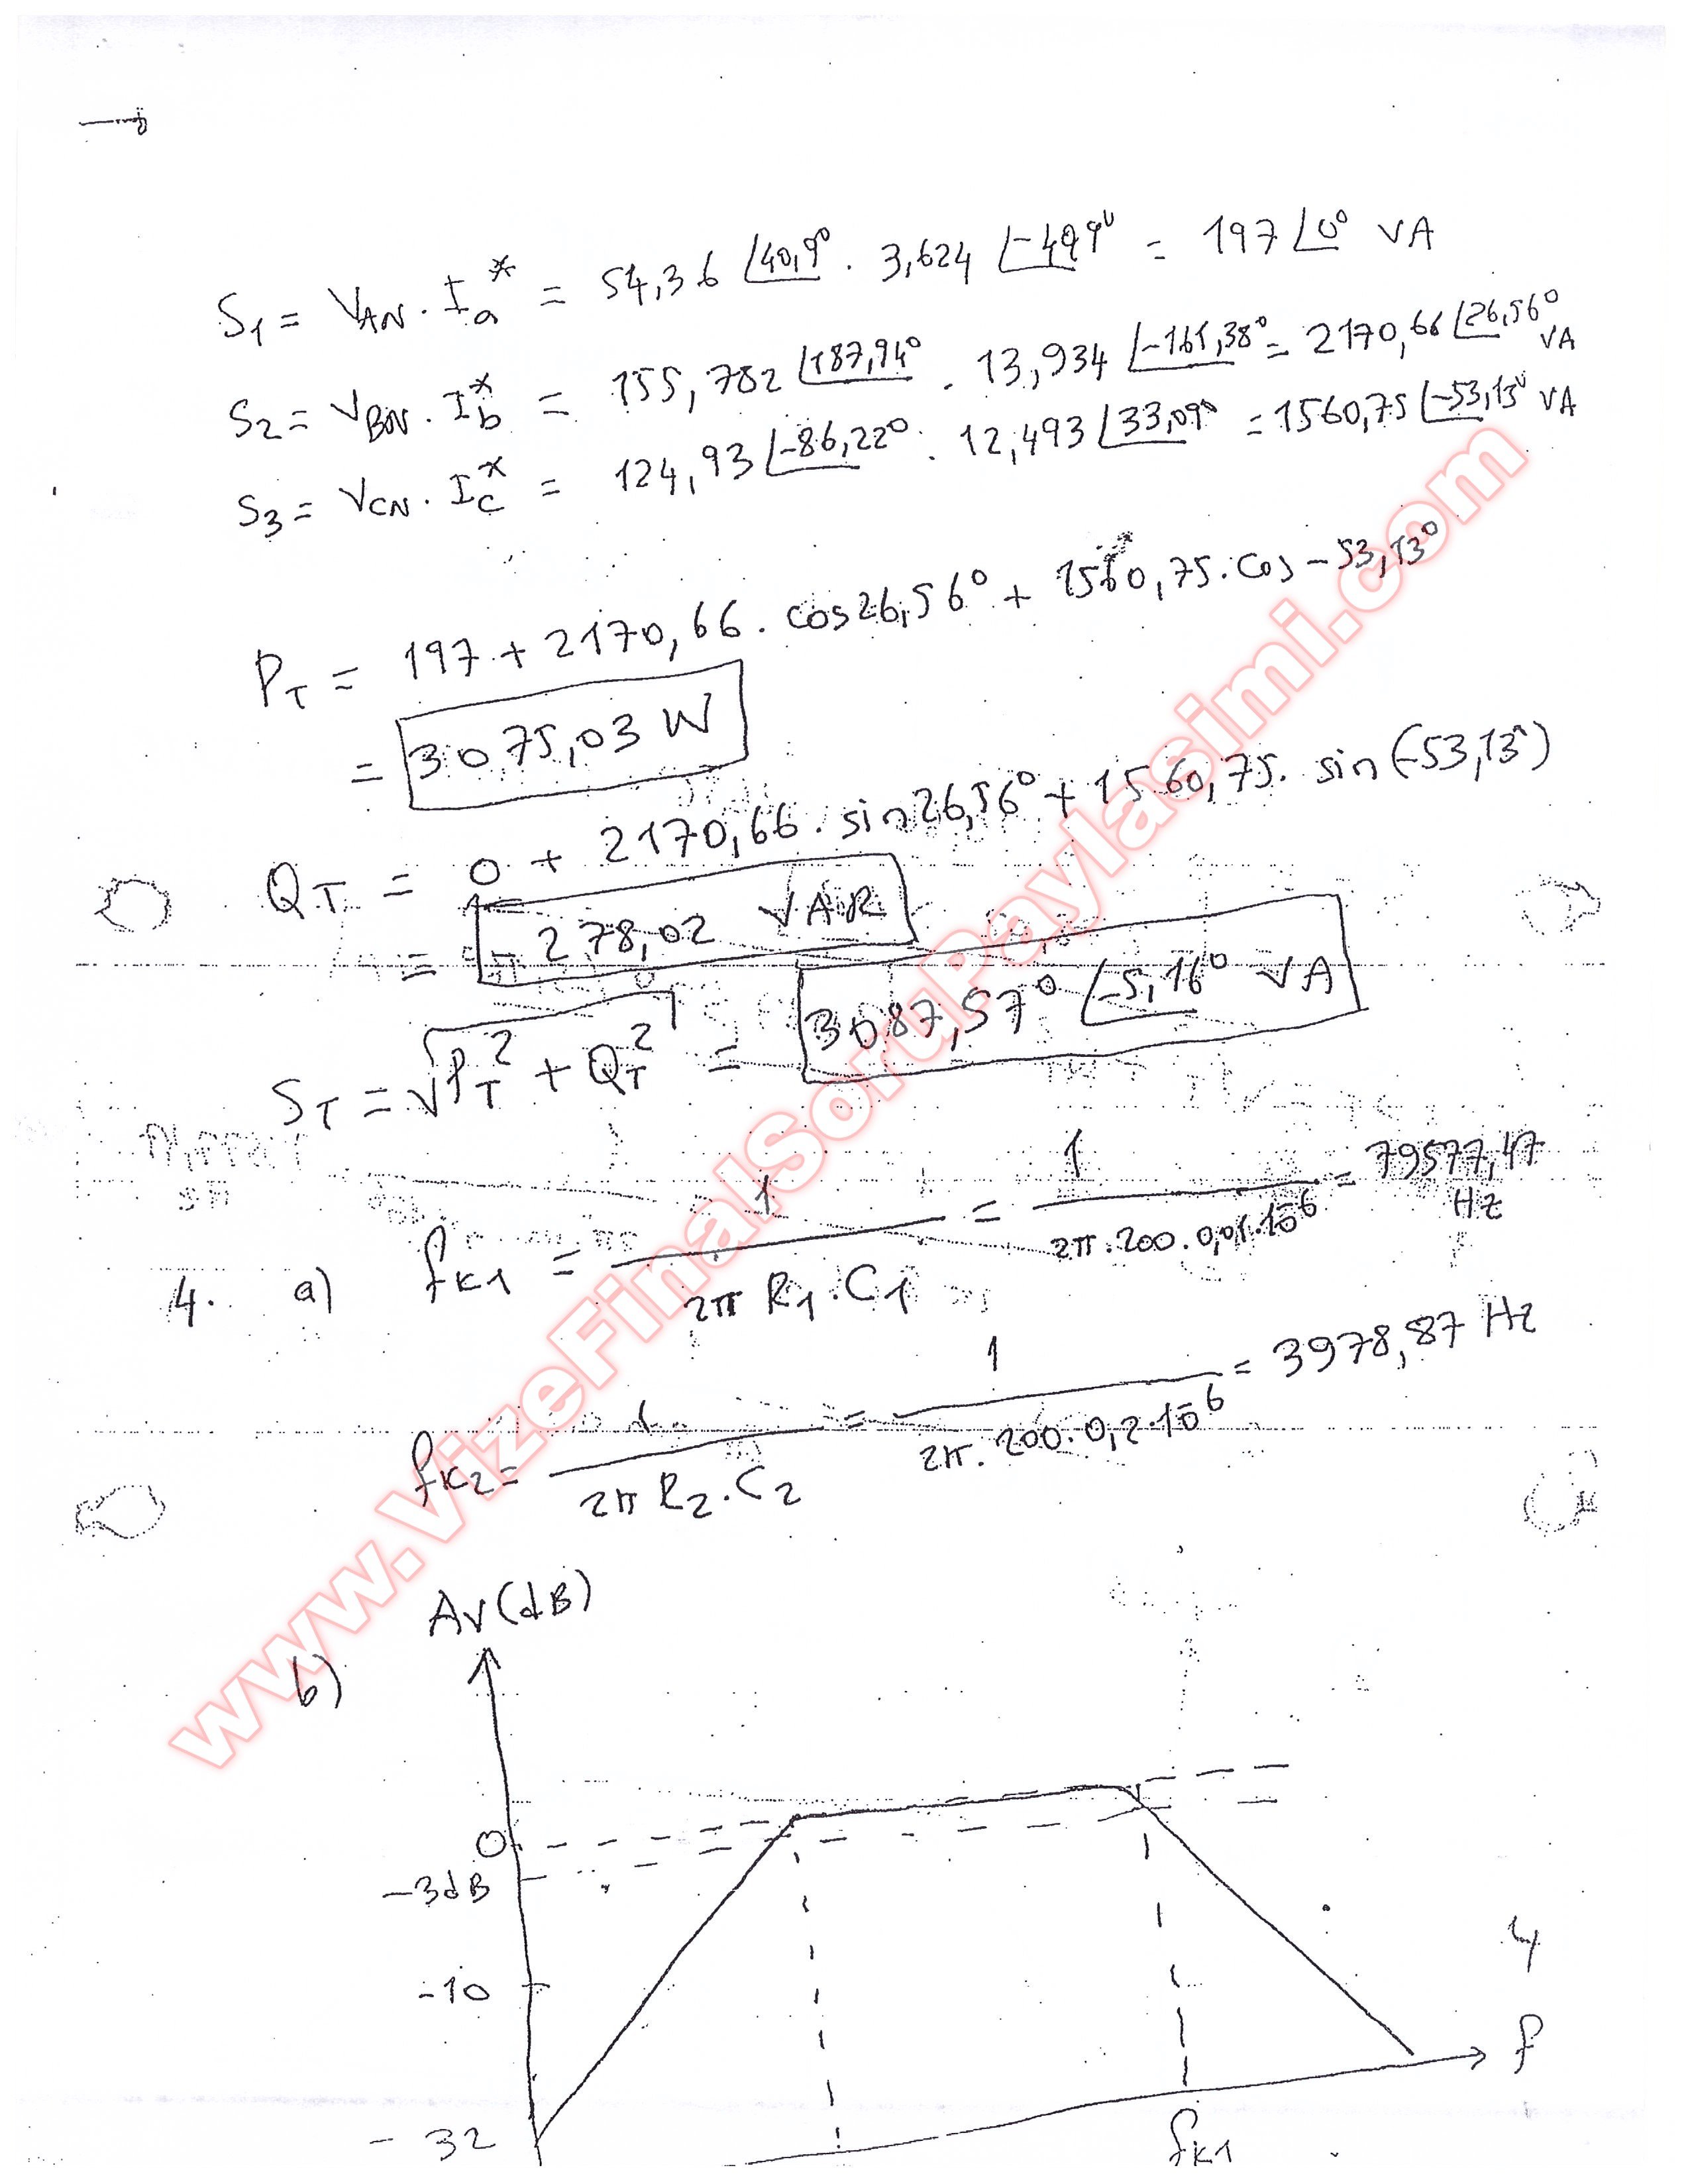 S1 = VAN . Ia* = 54,36 ∠40,9° . 3,624 ∠-40,9° = 197 ∠0° VA
S2 = VBN . Ib* = 155,782 ∠187,94° . 13,934 ∠-161,38° = 2170,66 ∠26,56° VA
S3 = VCN . Ic* = 124,93 ∠-86,22° . 12,493 ∠33,09° = 1560,75 ∠-53,13° VA
PT = 197 + 2170,66 . cos26,56° + 1560,75 . cos -53,13°
= 3075,03 W
QT = 0 + 2170,66 . sin26,56° + 1560,75 . sin(-53,13°)
= 278,02 VAR
ST = √PT² + QT² = 3087,57° ∠-5,16° VA
4. a) fK1 = 1 / 2π R1 . C1 = 1 / 2π . 200 . 0,01 . 10^-6 = 79577,47 Hz
fK2 = 1 / 2π R2 . C2 = 1 / 2π . 200 . 0,2 . 10^-6 = 3978,87 Hz
b) Av(dB)
0
-3dB
-10
-32
fK1
f
4
www.VizeFinalSoruPaylasimi.com